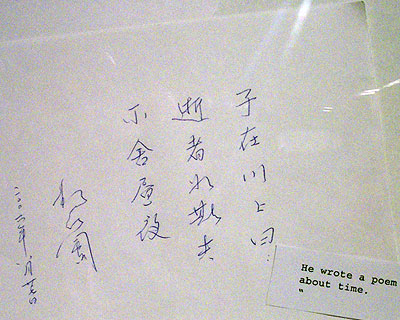 子在川上曰:
逝者如斯夫
不舍昼夜
He wrote a poem
about time.
"